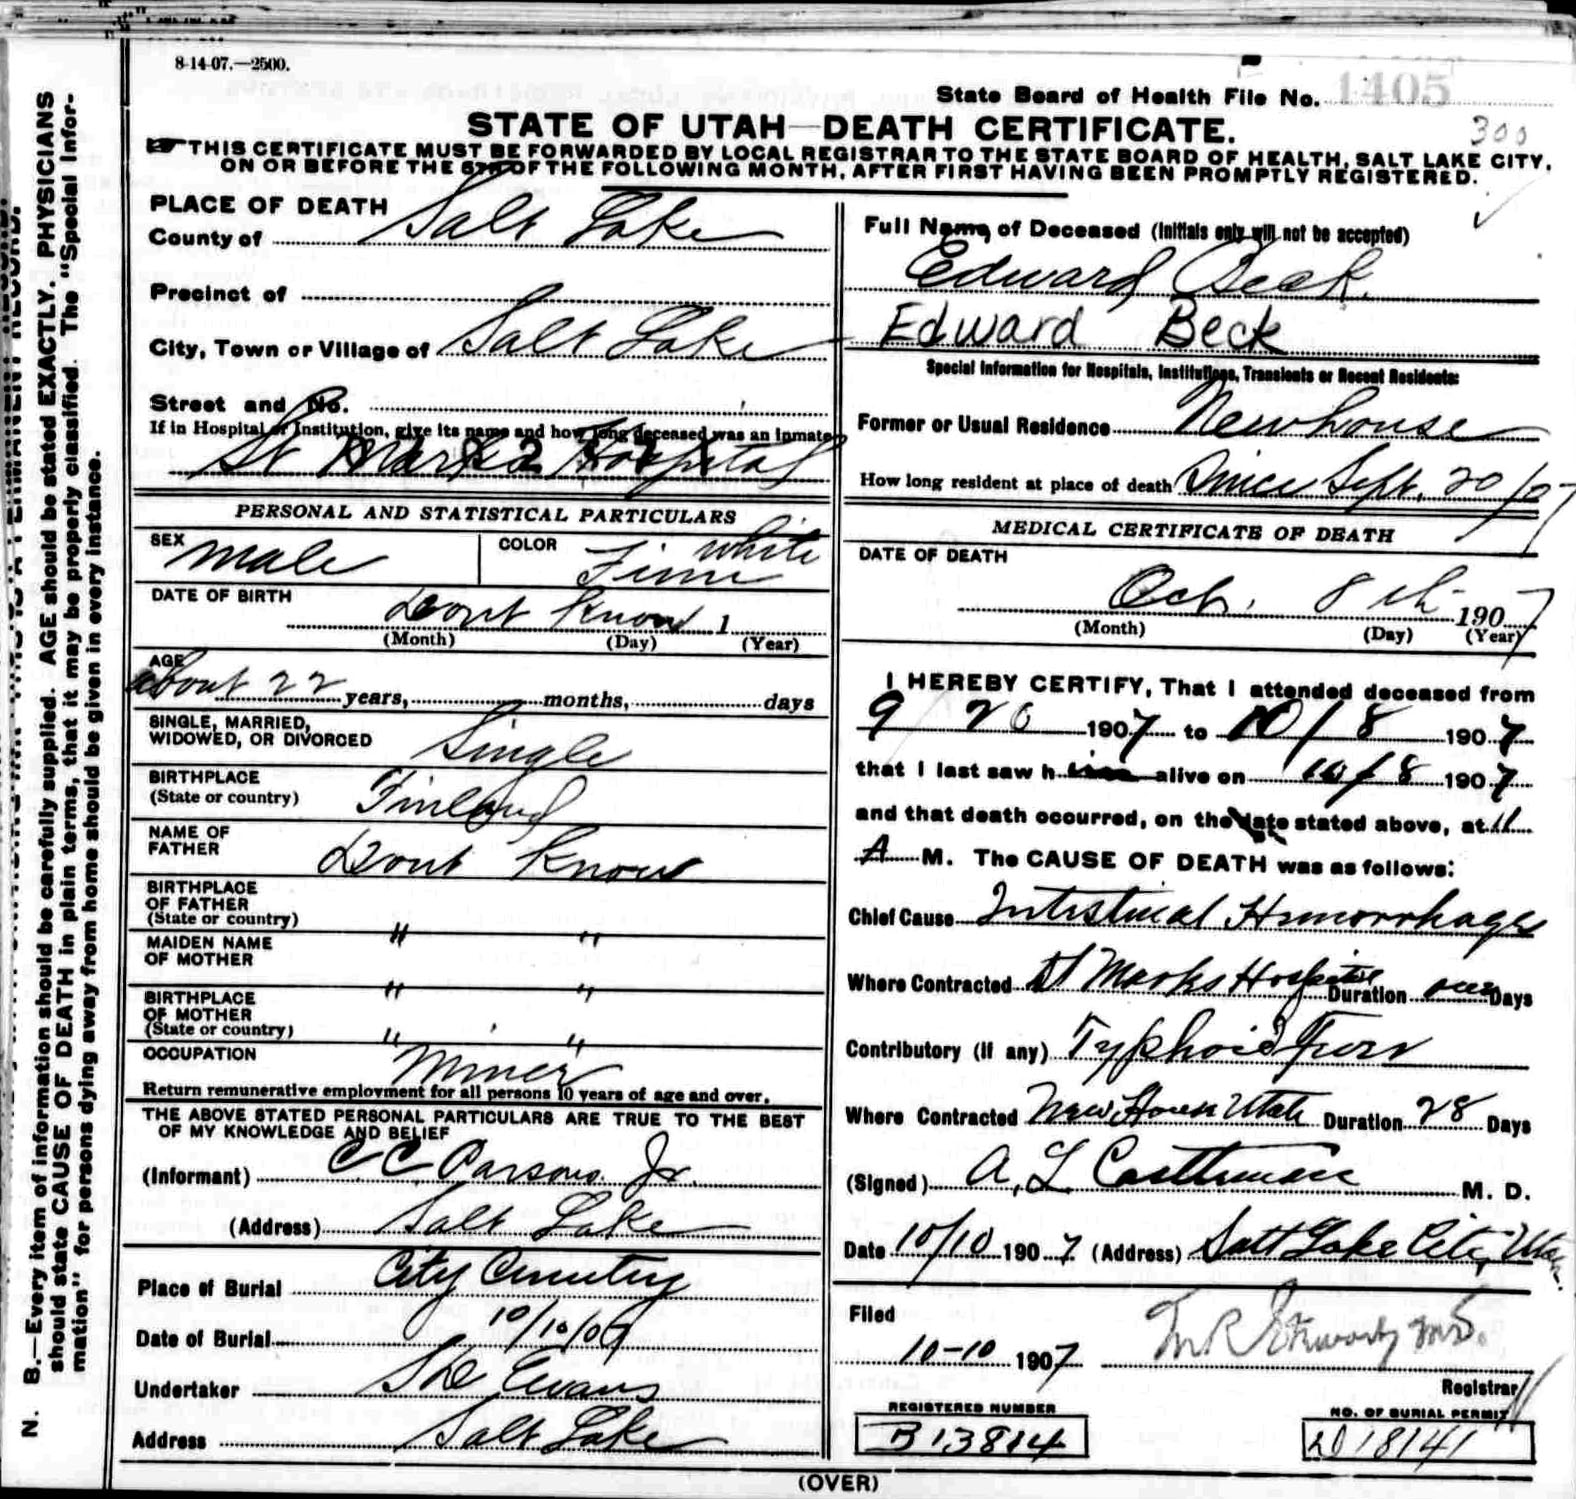 8-14-07.—2500.
State Board of Health File No. 1405
300
STATE OF UTAH—DEATH CERTIFICATE.
THIS CERTIFICATE MUST BE FORWARDED BY LOCAL REGISTRAR TO THE STATE BOARD OF HEALTH, SALT LAKE CITY,
ON OR BEFORE THE 5TH OF THE FOLLOWING MONTH, AFTER FIRST HAVING BEEN PROMPTLY REGISTERED.
N. B.—Every item of information should be carefully supplied. AGE should be stated EXACTLY. PHYSICIANS
should state CAUSE OF DEATH in plain terms, that it may be properly classified. The "Special Infor-
mation" for persons dying away from home should be given in every instance.
PLACE OF DEATH
County of Salt Lake
Precinct of
City, Town or Village of Salt Lake
Street and No.
If in Hospital or Institution, give its name and how long deceased was an inmate
St Marks Hospital
PERSONAL AND STATISTICAL PARTICULARS
SEX male COLOR white
DATE OF BIRTH Dont Know 1
(Month) (Day) (Year)
AGE about 22 years, months, days
SINGLE, MARRIED,
WIDOWED, OR DIVORCED Single
BIRTHPLACE
(State or country) Finland
NAME OF
FATHER Dont Know
BIRTHPLACE
OF FATHER
(State or country) " "
MAIDEN NAME
OF MOTHER " "
BIRTHPLACE
OF MOTHER
(State or country) " "
OCCUPATION Miner
Return remunerative employment for all persons 10 years of age and over.
THE ABOVE STATED PERSONAL PARTICULARS ARE TRUE TO THE BEST
OF MY KNOWLEDGE AND BELIEF
(Informant) C C Parsons Jr.
(Address) Salt Lake
Place of Burial City Cemetery
Date of Burial 10/10/07
Undertaker Evans
Address Salt Lake
Full Name of Deceased (Initials only will not be accepted)
Edward Beck
Edward Beck
Special Information for Hospitals, Institutions, Transients or Recent Residents:
Former or Usual Residence Newhouse
How long resident at place of death Since Sept. 20/07
MEDICAL CERTIFICATE OF DEATH
DATE OF DEATH
Oct. 8th 1907
(Month) (Day) (Year)
I HEREBY CERTIFY, That I attended deceased from
9 20 1907 to 10/8 1907
that I last saw h alive on 10/8 1907
and that death occurred, on the date stated above, at 11
A M. The CAUSE OF DEATH was as follows:
Chief Cause Intestinal Hemorrhage
Where Contracted St Marks Hospital Duration Days
Contributory (if any) Typhoid Fever
Where Contracted New House Utah Duration 28 Days
(Signed) A. L. M. D.
Date 10/10 1907 (Address) Salt Lake City, Utah
Filed
10-10 1907
Registrar
REGISTERED NUMBER
B13814
NO. OF BURIAL PERMIT
18141
(OVER)